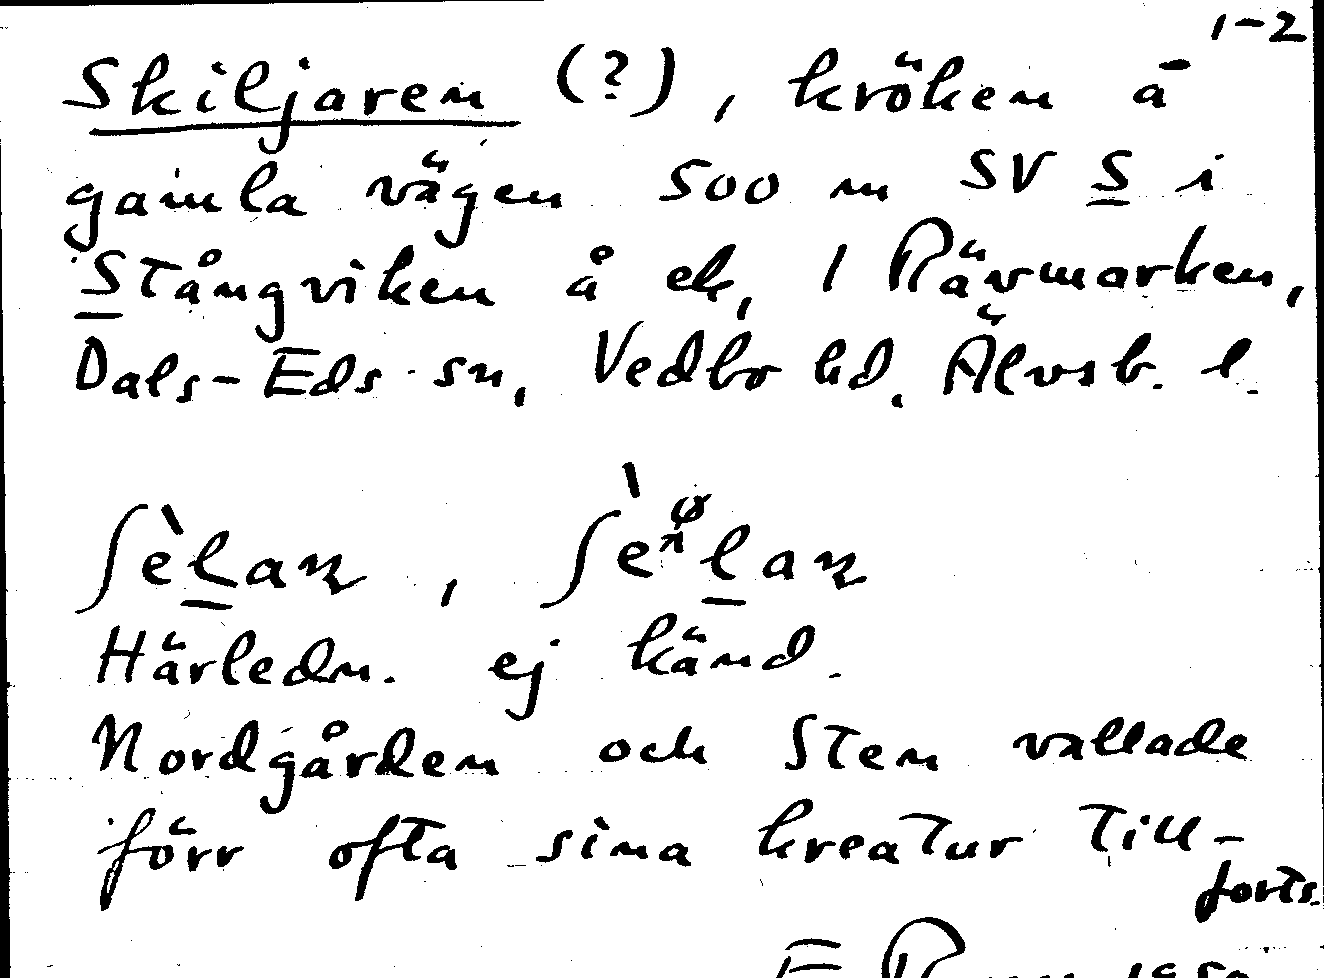 1-2
Skiljaren (?), kröken å
gamla vägen 500 m SV S i
Stångviken å ek, 1 Rävmarken,
Dals-Eds sn, Vedbo hd. Älvsb. l.
Härledn. ej känd.
Nordgården och Sten vallade
förr ofta sina kreatur till-
forts.